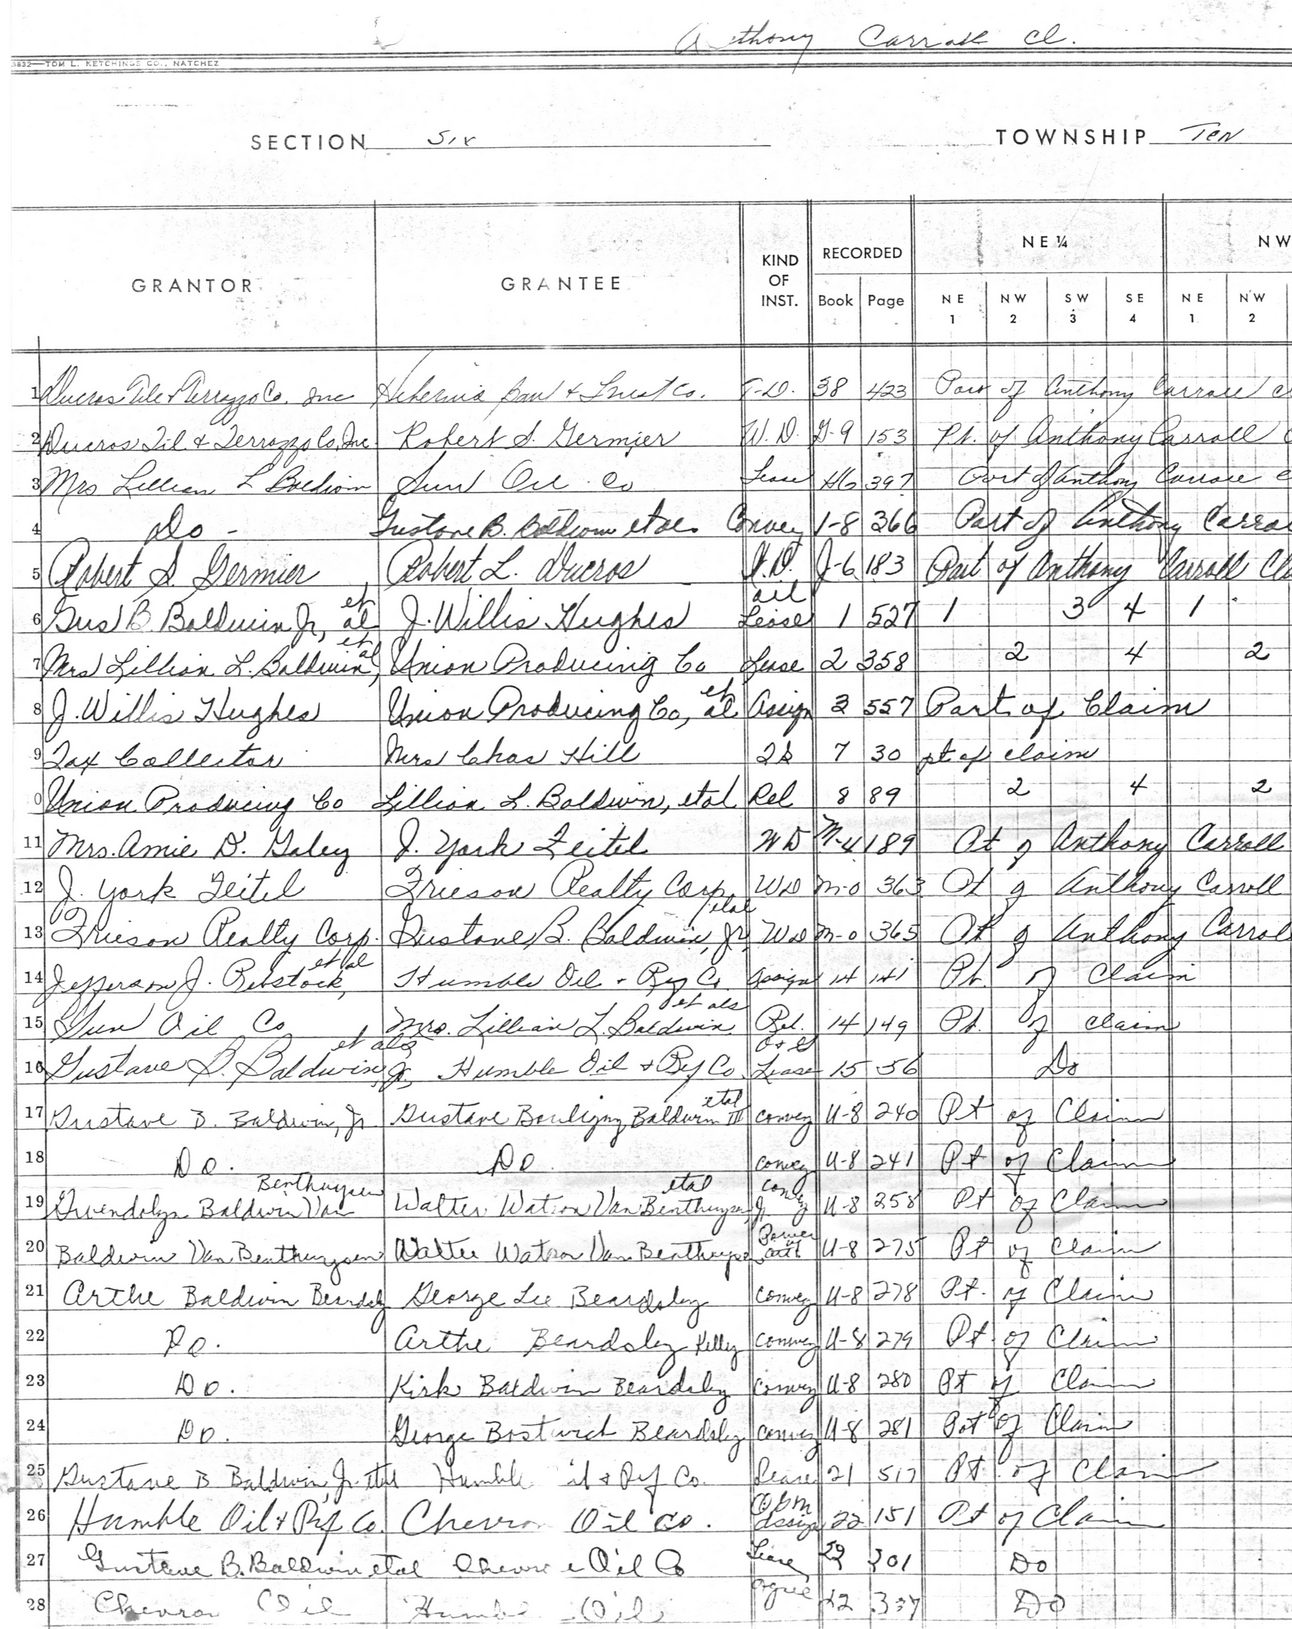 Anthony Carroll Cl.
3832—TOM L. KETCHINGS CO., NATCHEZ
SECTION Six TOWNSHIP Ten
GRANTOR GRANTEE KIND OF INST. RECORDED NE ¼ NW
Book Page NE 1 NW 2 SW 3 SE 4 NE 1 NW 2
1 Ducros Tile & Terrazzo Co. Inc Hibernia & Trust Co. T-D. 38 423 Part of Anthony Carroll
2 Ducros Til & Terrazzo Co, Inc Robert S. Germier W. D. G-9 153 Pt. of Anthony Carroll
3 Mrs Lillian L Baldwin Sun Oil Co Lease 397 Part of Anthony Carroll
4 Do - Gustave B. Baldwin et als Convey 1-8 366 Part of Anthony Carroll
5 Robert S Germier Robert L. Ducros J-6 183 Part of Anthony Carroll Cla
6 Gus B. Baldwin Jr, et al J. Willis Hughes Oil Lease 1 527 1 3 4 1
7 Mrs Lillian L. Baldwin, et al Union Producing Co Lease 2 358 2 4 2
8 J. Willis Hughes Union Producing Co, et al Assign 2 557 Part of Claim
9 Tax Collector Mrs Chas Hill 7 30 pt of claim
0 Union Producing Co Lillian L. Baldwin, et al Rel 8 89 2 4 2
11 Mrs. Amie D. Galey J. York Feitel WD M-4 189 Pt of Anthony Carroll
12 J. York Feitel Frieson Realty Corp WD M-0 363 Pt of Anthony Carroll
13 Frieson Realty Corp. Gustave B. Baldwin, Jr et al WD M-0 365 Pt of Anthony Carrol
14 Jefferson J. Rebstock, et al Humble Oil & Ref Co. Assign 14 141 Pt. of Claim
15 Sun Oil Co Mrs. Lillian L Baldwin et als Rel. 14 149 Pt. of claim
16 Gustave B. Baldwin, Jr et als Humble Oil & Ref Co. O & G Lease 15 56 Do
17 Gustave B. Baldwin, Jr Gustave Bouligny Baldwin III et al convey U-8 240 Pt of Claim
18 Do. Do convey U-8 241 Pt of Claim
19 Gwendolyn Baldwin Van Benthuysen Walter Watson Van Benthuysen, Jr et al convey U-8 258 Pt of Claim
20 Baldwin Van Benthuysen Walter Watson Van Benthuysen Power of att U-8 275 Pt of Claim
21 Arthe Baldwin Beardsley George Lee Beardsley convey U-8 278 Pt. of Claim
22 Do. Arthe Beardsley Kelly convey U-8 279 Pt of Claim
23 Do. Kirk Baldwin Beardsley convey U-8 280 Pt of Claim
24 Do. George Bostwick Beardsley convey U-8 281 Pt of Claim
25 Gustave B Baldwin, Jr. et al Humble il & Ref Co. Lease 21 517 Pt. of Claim
26 Humble Oil & Ref Co. Chevron Oil Co. Assign 22 151 Pt of Claim
27 Gustave B. Baldwin et al Chevron Oil Co Lease 22 301 Do
28 Chevron Oil Humble Oil Agree 22 337 Do